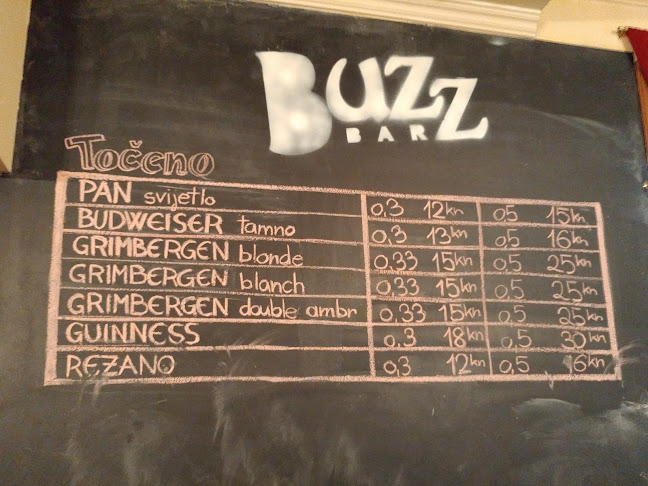 BUZZ
BAR
Točeno
PAN svijetlo 0,3 12kn 0,5 15kn
BUDWEISER tamno 0,3 13kn 0,5 16kn
GRIMBERGEN blonde 0,33 15kn 0,5 25kn
GRIMBERGEN blanch 0,33 15kn 0,5 25kn
GRIMBERGEN double ambr 0,33 15kn 0,5 25kn
GUINNESS 0,3 18kn 0,5 30kn
REZANO 0,3 12kn 0,5 16kn